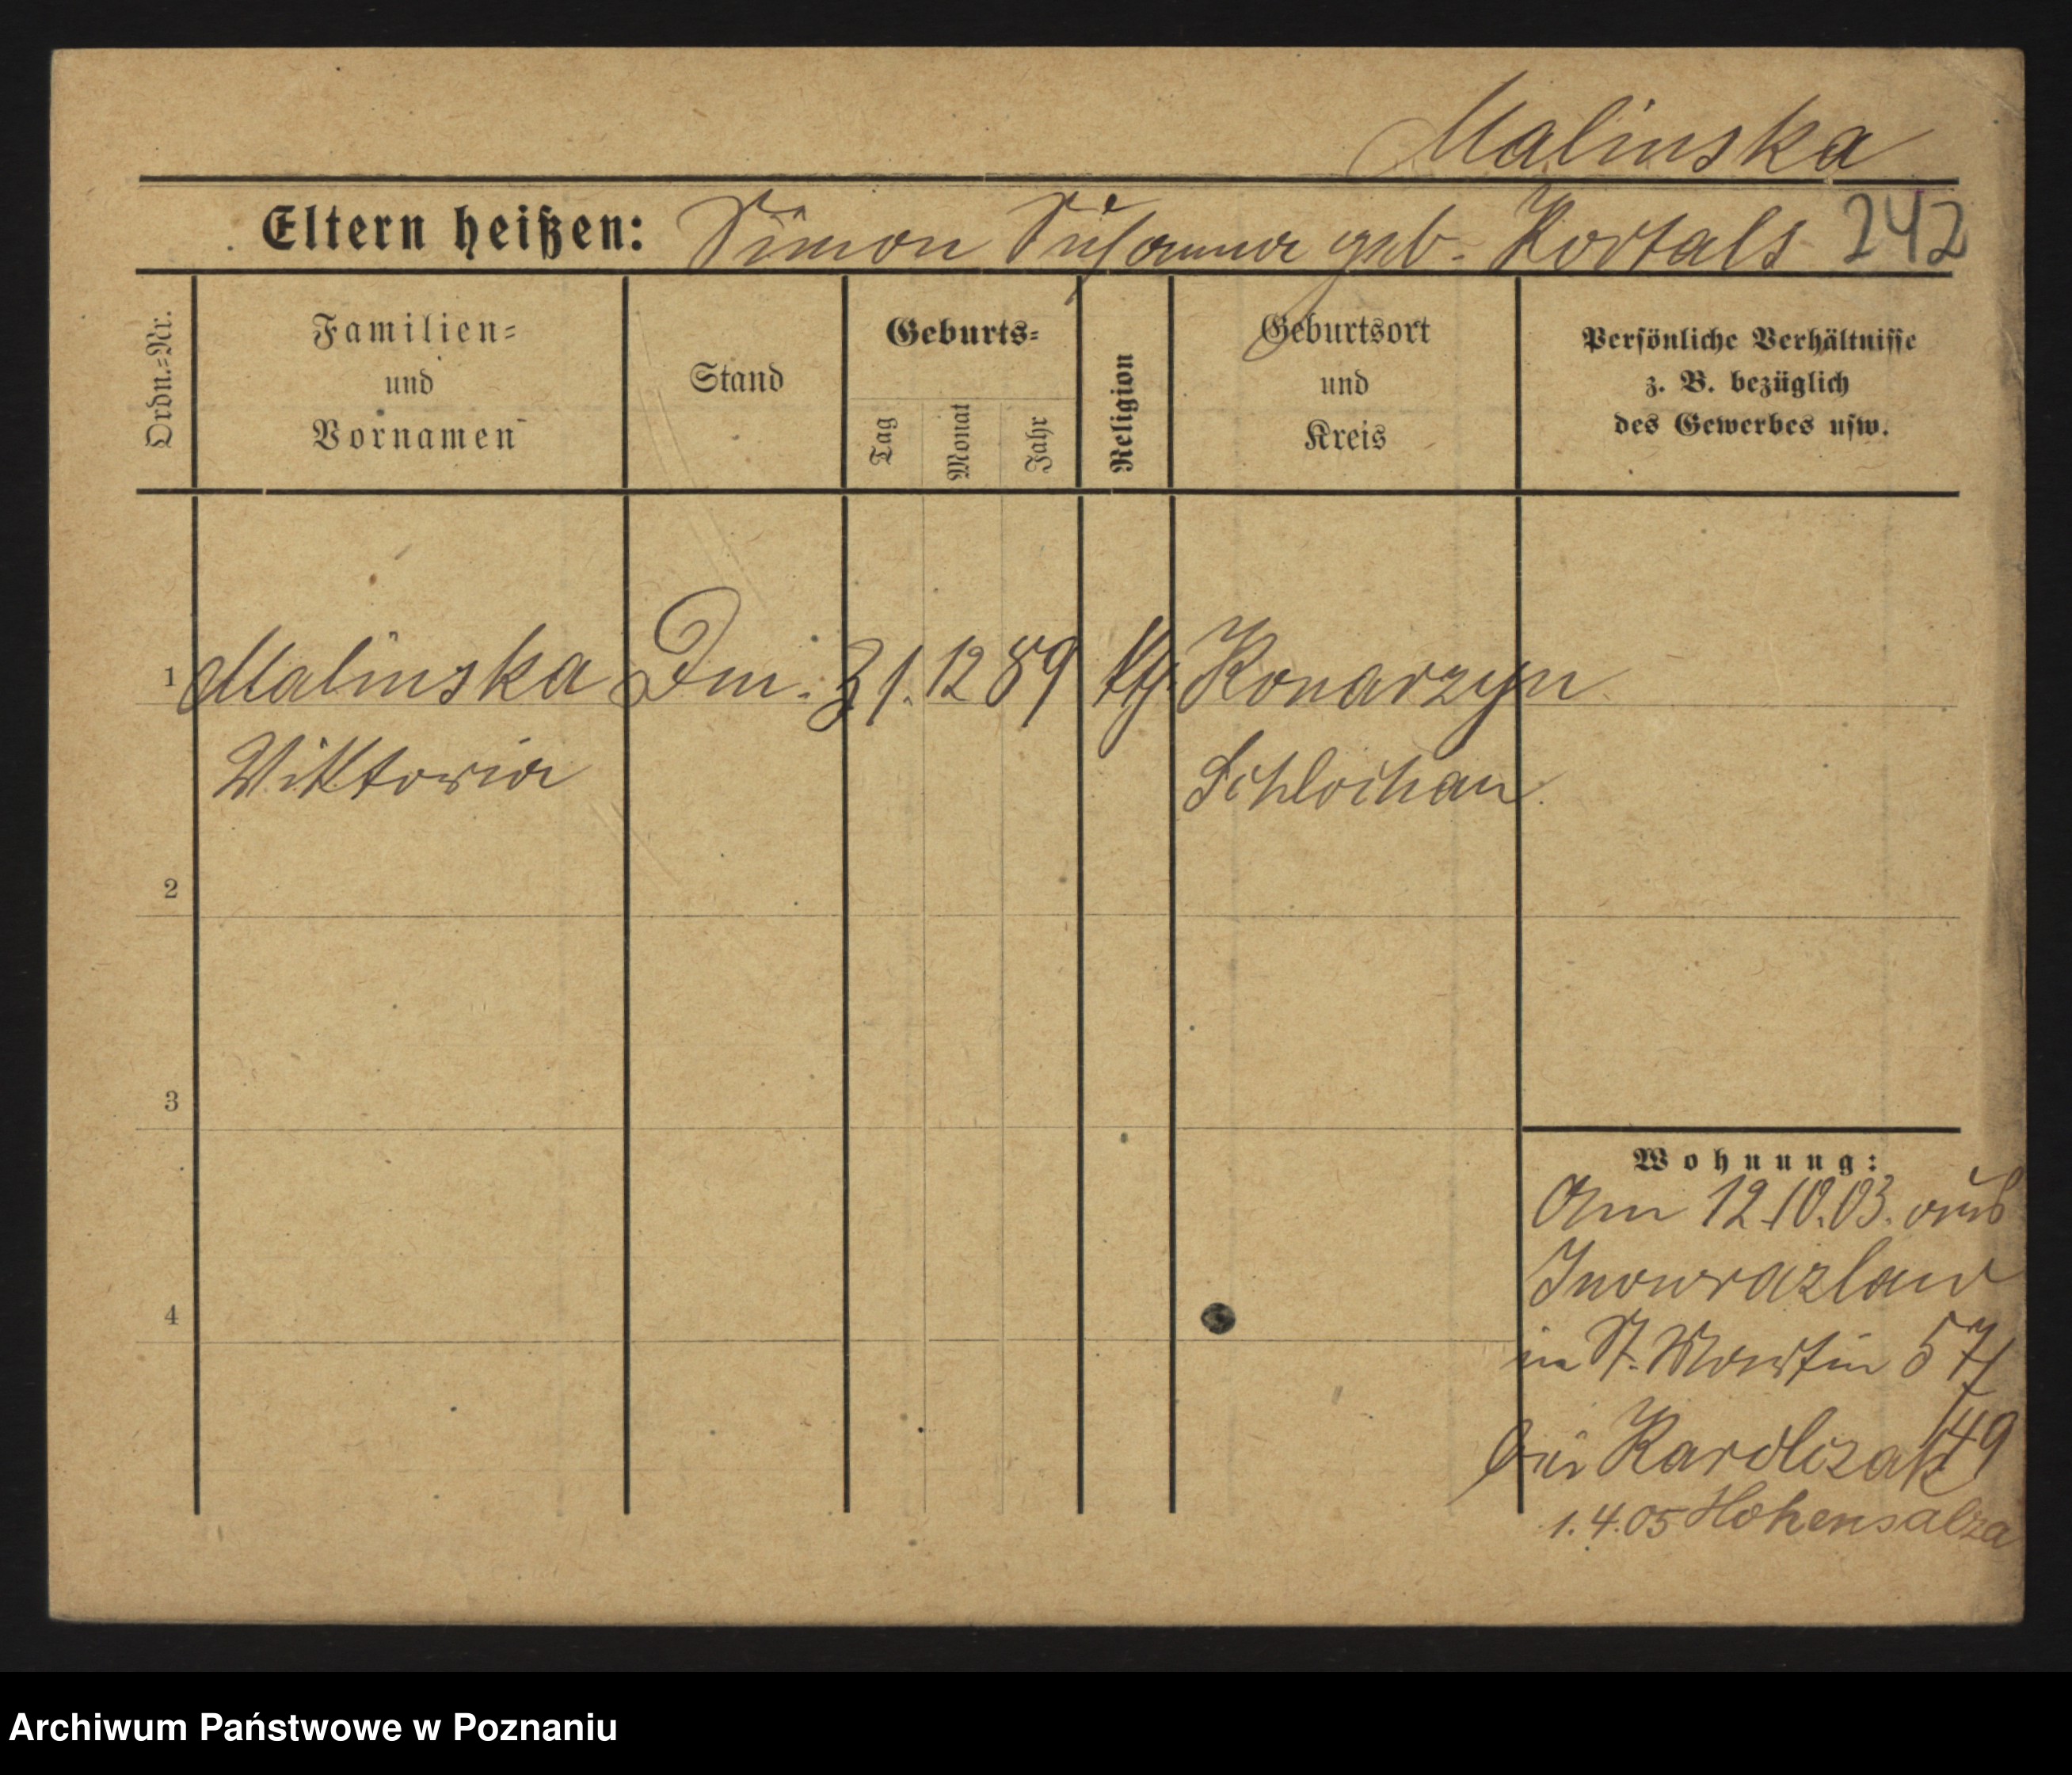 Malinska
Eltern heißen: Simon Susanna geb. Kortals 242
Ordn.=Nr.
Familien=
und
Vornamen
Stand
Geburts=
Tag
Monat
Jahr
Religion
Geburtsort
und
Kreis
Persönliche Verhältnisse
z. B. bezüglich
des Gewerbes usw.
1 Malinska 31. 12 89 Konarzyn
Viktoria Schlochau.
2
3
4
Wohnung:
Am 12.10.03. aus
Inowrazlaw
in St. Martin 57/
bei Karolczak 49
1.4.05 Hohensalza
Archiwum Państwowe w Poznaniu